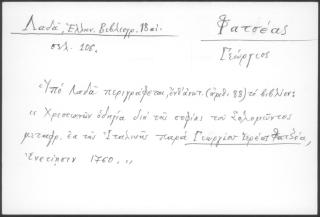 Λαδᾶ, Ἑλλην. Βιβλιογρ. 18 αἰ.
σελ. 106.
Φατσέας
Γεώργιος
"Ὑπό Λαδᾶ περιγράφεται, (ἀριθ. 88) τό βιβλίον:
"Χρυσωνῶν ὁδηγία διά τῆς σοφίας τοῦ Σολομῶντος
μεταφρ. ἐκ τῆς Ἰταλικῆς παρά Γεωργίου Ἱερέως Φατζέα,
Ἐνετίησιν 1760.,,